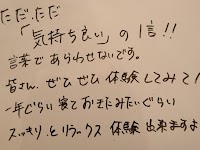 ただ.ただ
「気持ち良い」の1言!!
言葉であらわせないです。
皆さん、ぜひぜひ体験してみて!
一年ぐらい寝ておきたみたいぐらい
スッキリ.とリラックス体験出来ますよ